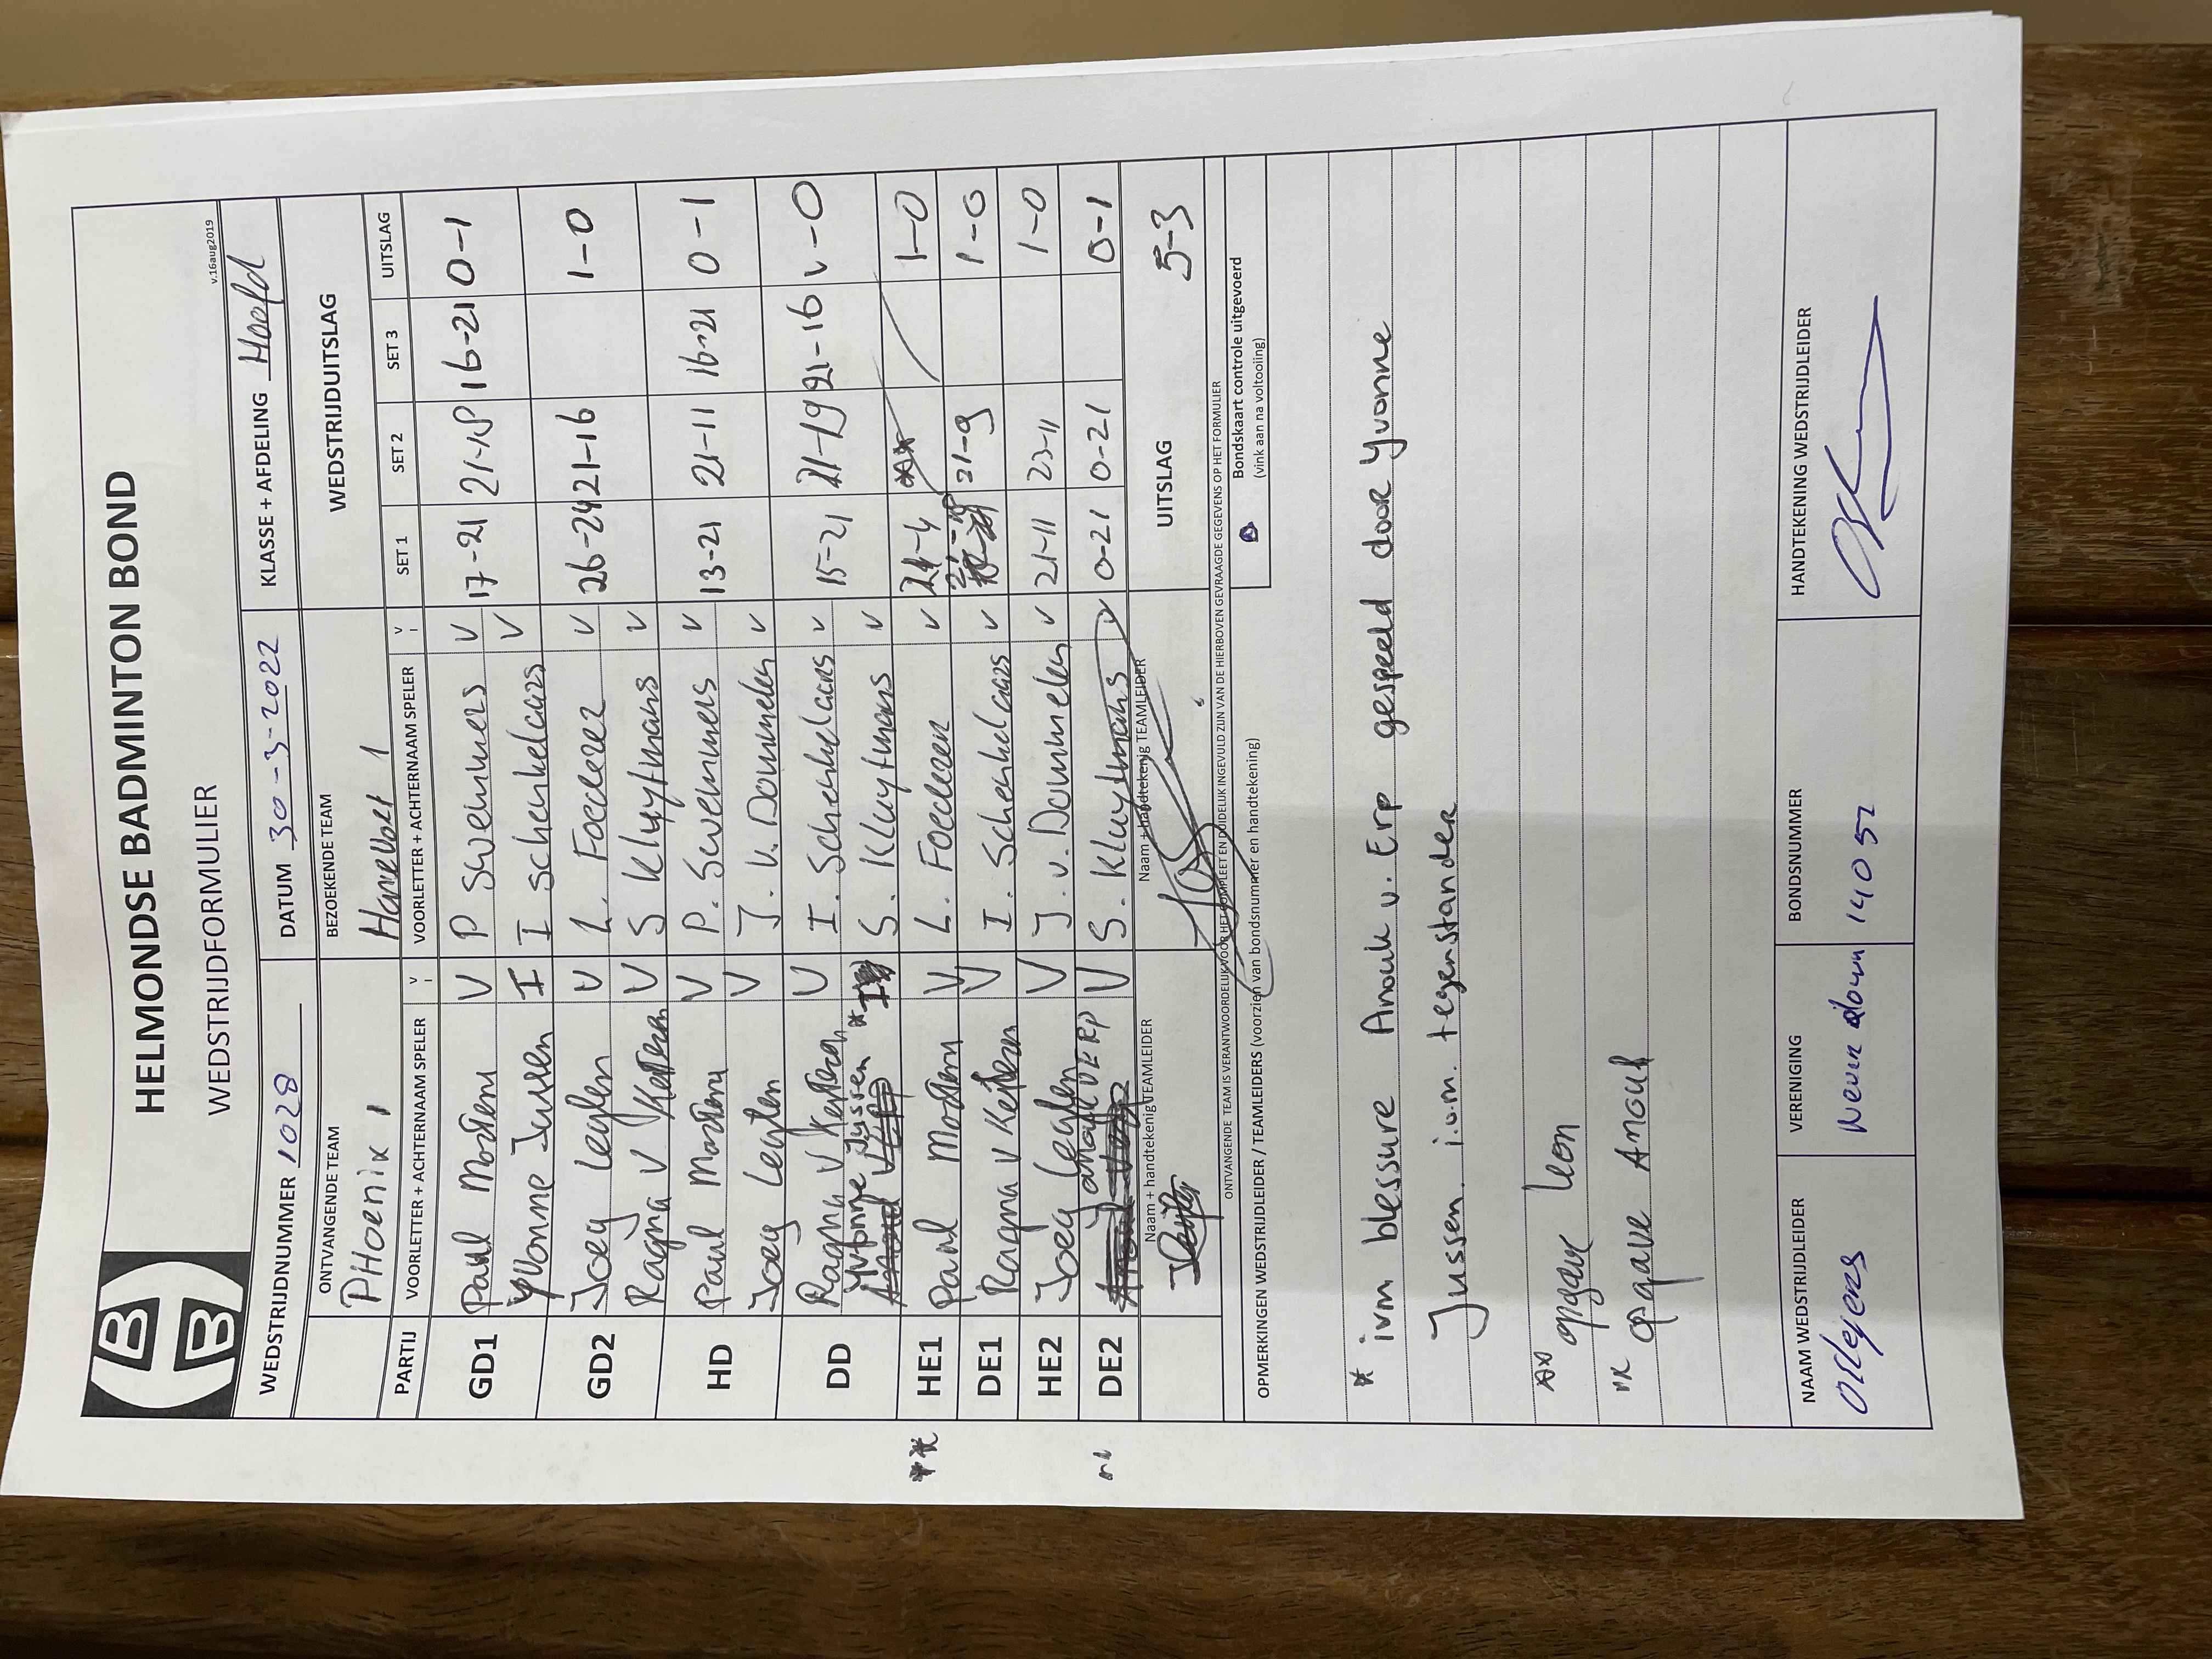 HELMONDSE BADMINTON BOND
WEDSTRIJDFORMULIER
v.16aug2019
WEDSTRIJDNUMMER 1028 DATUM 30-3-2022 KLASSE + AFDELING Hoofd
ONTVANGENDE TEAM BEZOEKENDE TEAM WEDSTRIJDUITSLAG
PHoenix 1 Hanevoet 1
PARTIJ VOORLETTER + ACHTERNAAM SPELER V I VOORLETTER + ACHTERNAAM SPELER V I SET 1 SET 2 SET 3 UITSLAG
GD1 Paul Martens V P Swemmers V 17-21 21-18 16-21 0-1
Yvonne Jussen I I Schenkelaars V
GD2 Joey Legten V L. Foederer V 26-24 21-16 1-0
Ragna v Kesteren V S Kluytmans V
HD Paul Martens V P. Swemmers V 13-21 21-11 16-21 0-1
Joey Legten V J. v. Dommelen V
DD Ragna v Kesteren V I. Schenkelaars V 15-21 21-19 21-16 v-0
Yvonne Jussen * I S. Kluytmans V
** HE1 Paul Martens V L. Foederer V 21-4 1-0
DE1 Ragna v Kesteren V I. Schenkelaars V 21-9 1-0
HE2 Joey Legten V J. v. Dommelen V 21-11 23-11 1-0
DE2 Anouk v ERP V S. Kluytmans V 0-21 0-21 0-1
Naam + handtekenig TEAMLEIDER Naam + handtekenig TEAMLEIDER UITSLAG 5-3
ONTVANGENDE TEAM IS VERANTWOORDELIJK VOOR HET COMPLEET EN DUIDELIJK INGEVULD ZIJN VAN DE HIERBOVEN GEVRAAGDE GEGEVENS OP HET FORMULIER
OPMERKINGEN WEDSTRIJDLEIDER / TEAMLEIDERS (voorzien van bondsnummer en handtekening)
Bondskaart controle uitgevoerd
(vink aan na voltooiing)
* ivm blessure Anouk v. Erp gespeeld door Yvonne
Jussen. i.o.m. tegenstander
** opgave Leon
opgave Anouk
NAAM WEDSTRIJDLEIDER VERENIGING BONDSNUMMER HANDTEKENING WEDSTRIJDLEIDER
Never down 14052